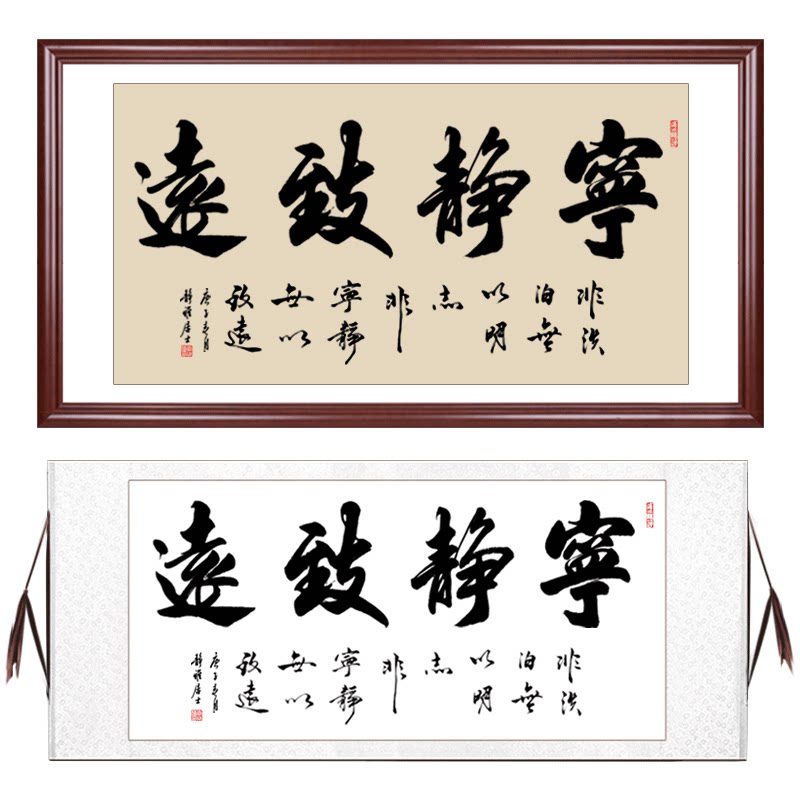 寧静致遠
非淡
泊無
以明
志
非
寧静
無以
致遠
庚子春月
静雅居士
寧静致遠
非淡
泊無
以明
志
非
寧静
無以
致遠
庚子春月
静雅居士